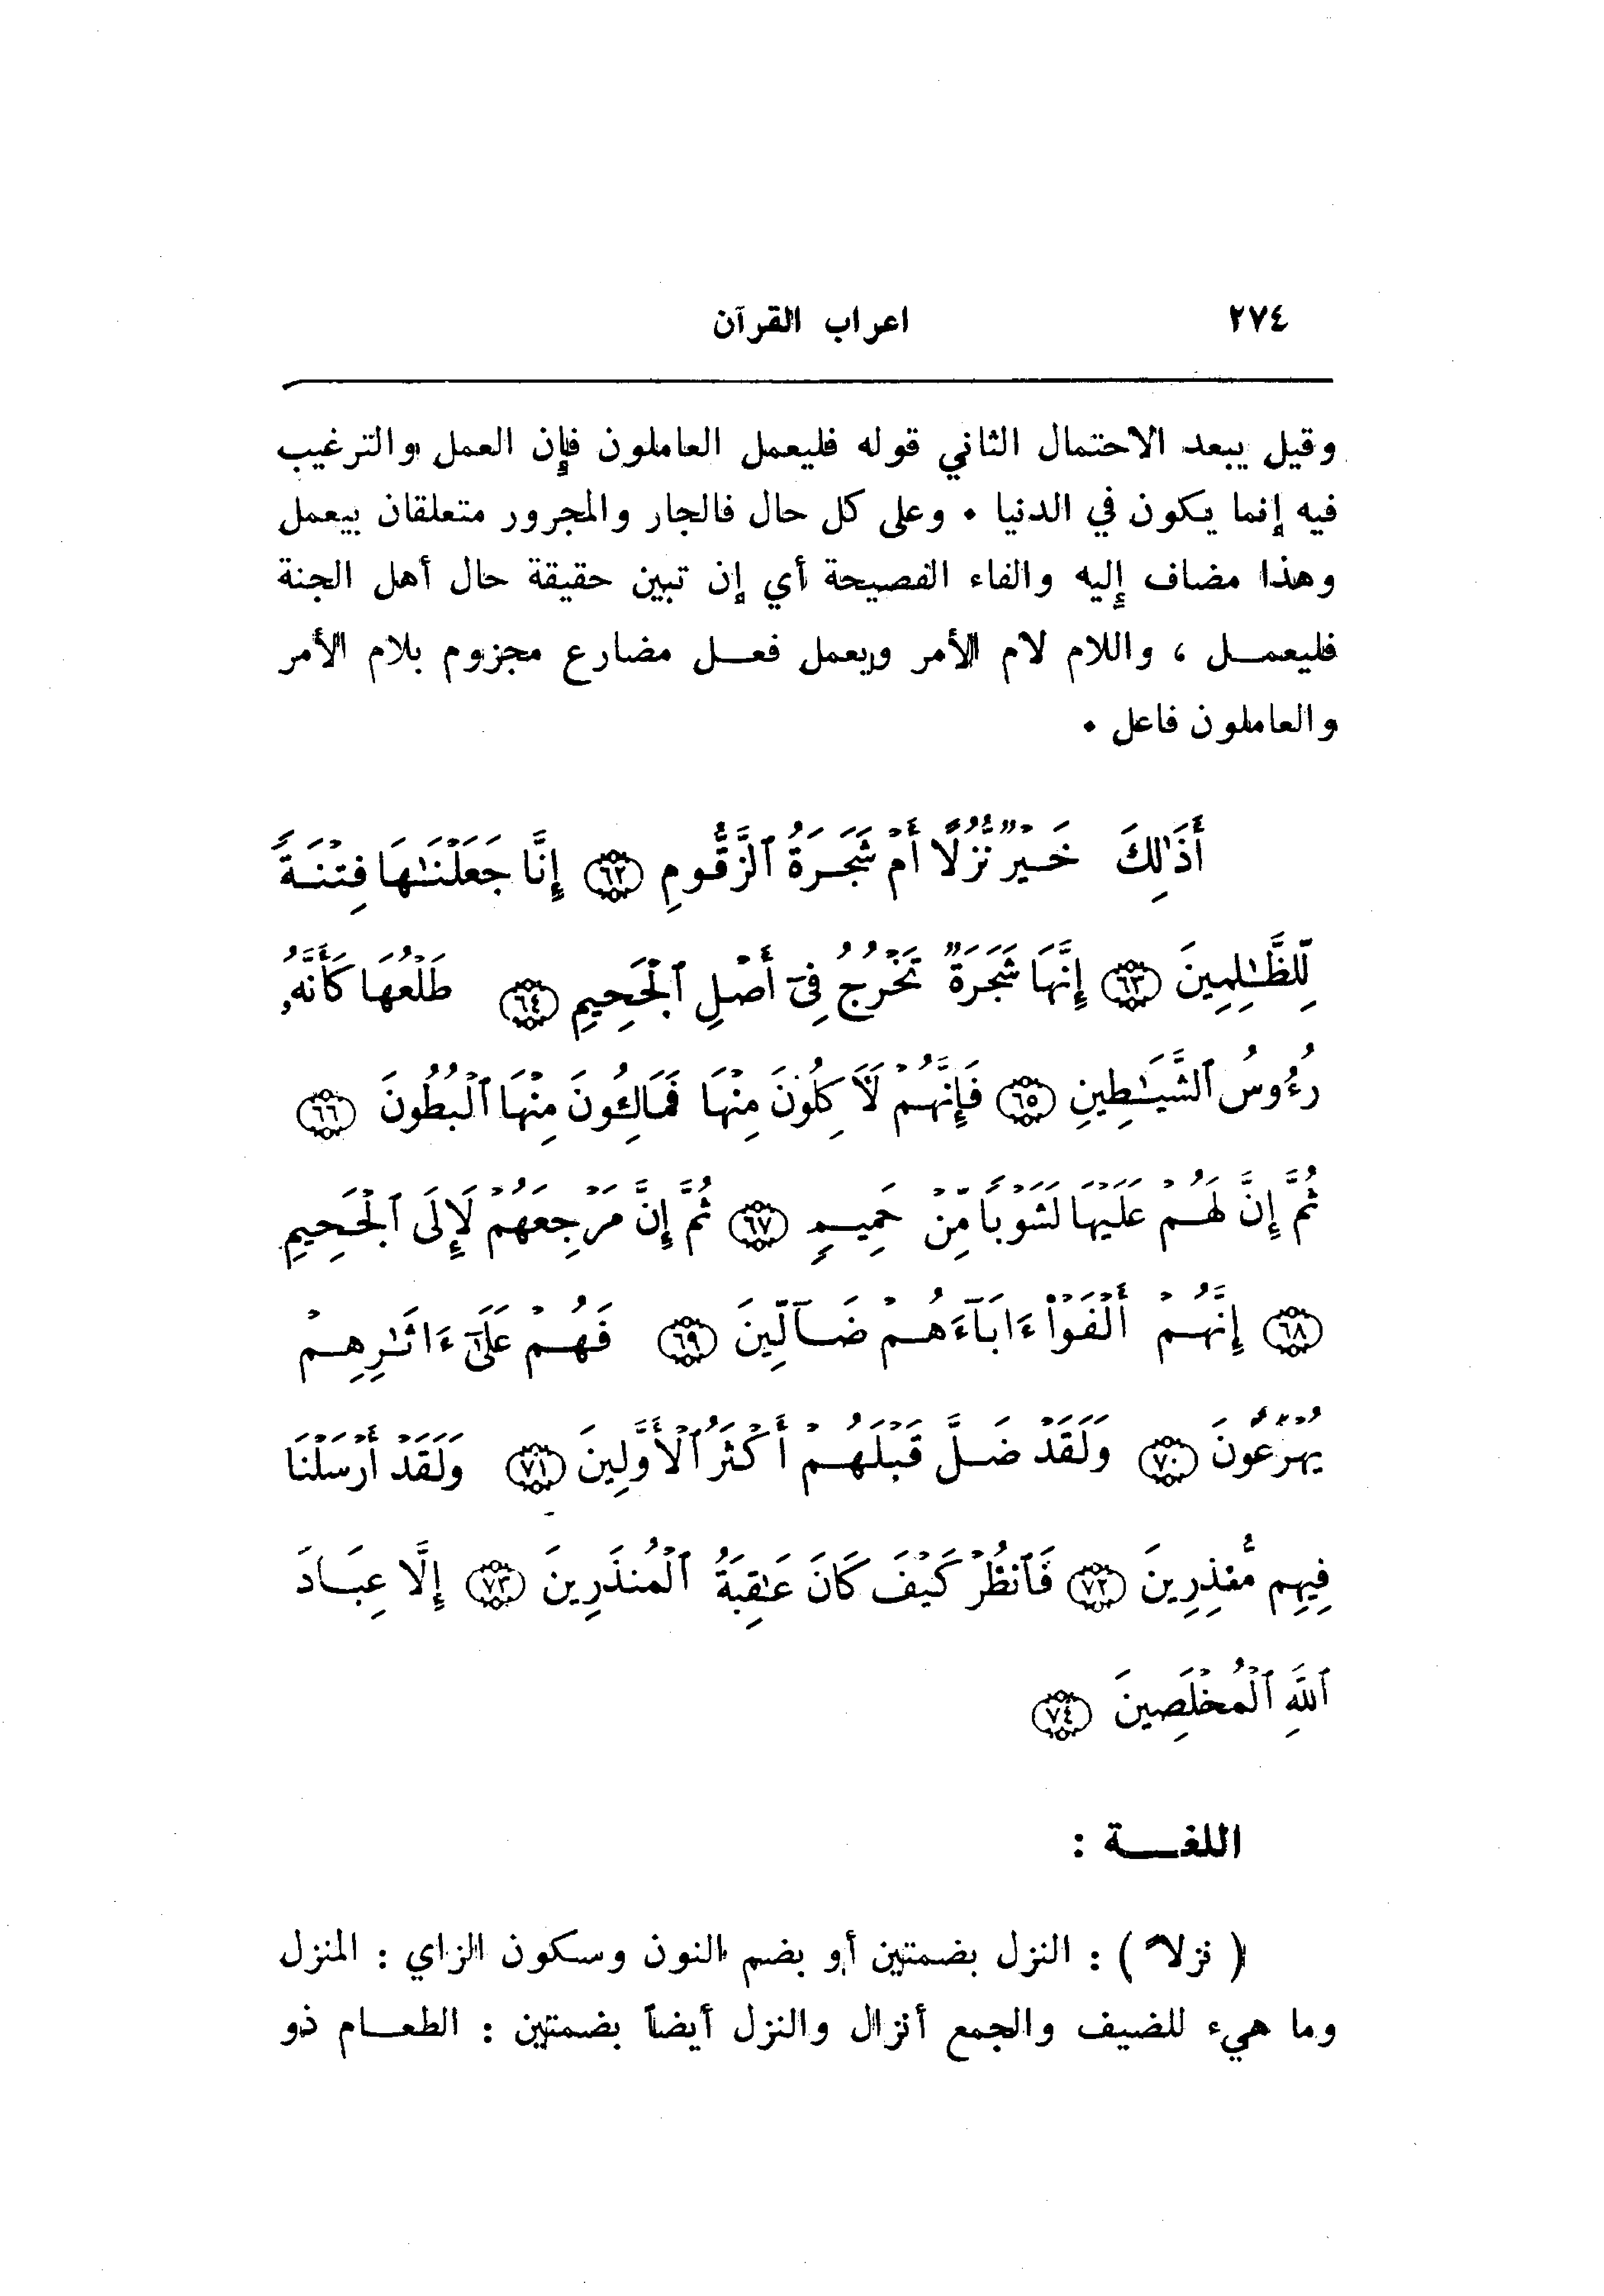 ٢٧٤
اعراب القرآن
وقيل يبعد الاحتمال الثاني قوله فليعمل العاملون فإن العمل والترغيب
فيه إنما يكون في الدنيا ٠ وعلى كل حال فالجار والمجرور متعلقان بيعمل
وهذا مضاف إليه والفاء الفصيحة أي إن تبين حقيقة حال أهل الجنة
فليعمــل ، واللام لام الأمر ويعمل فعــل مضارع مجزوم بلام الأمر
والعاملون فاعل ٠
أَذَٰلِكَ خَيْرٌ نُّزُلًا أَمْ شَجَرَةُ ٱلزَّقُّومِ ٦٢ إِنَّا جَعَلْنَٰهَا فِتْنَةً
لِّلظَّٰلِمِينَ ٦٣ إِنَّهَا شَجَرَةٌ تَخْرُجُ فِىٓ أَصْلِ ٱلْجَحِيمِ ٦٤ طَلْعُهَا كَأَنَّهُۥ
رُءُوسُ ٱلشَّيَٰطِينِ ٦٥ فَإِنَّهُمْ لَأَكِلُونَ مِنْهَا فَمَالِـُٔونَ مِنْهَا ٱلْبُطُونَ ٦٦
ثُمَّ إِنَّ لَهُمْ عَلَيْهَا لَشَوْبًا مِّنْ حَمِيمٍ ٦٧ ثُمَّ إِنَّ مَرْجِعَهُمْ لَإِلَى ٱلْجَحِيمِ
٦٨ إِنَّهُمْ أَلْفَوْاْ ءَابَآءَهُمْ ضَآلِّينَ ٦٩ فَهُمْ عَلَىٰٓ ءَاثَٰرِهِمْ
يُهْرَعُونَ ٧٠ وَلَقَدْ ضَلَّ قَبْلَهُمْ أَكْثَرُ ٱلْأَوَّلِينَ ٧١ وَلَقَدْ أَرْسَلْنَا
فِيهِم مُّنذِرِينَ ٧٢ فَٱنظُرْ كَيْفَ كَانَ عَٰقِبَةُ ٱلْمُنذَرِينَ ٧٣ إِلَّا عِبَادَ
ٱللَّهِ ٱلْمُخْلَصِينَ ٧٤
اللغــة :
( نزلاً ) : النزل بضمتين أو بضم النون وسكون الزاي : المنزل
وما هيء للضيف والجمع أنزال والنزل أيضاً بضمتين : الطعــام ذو